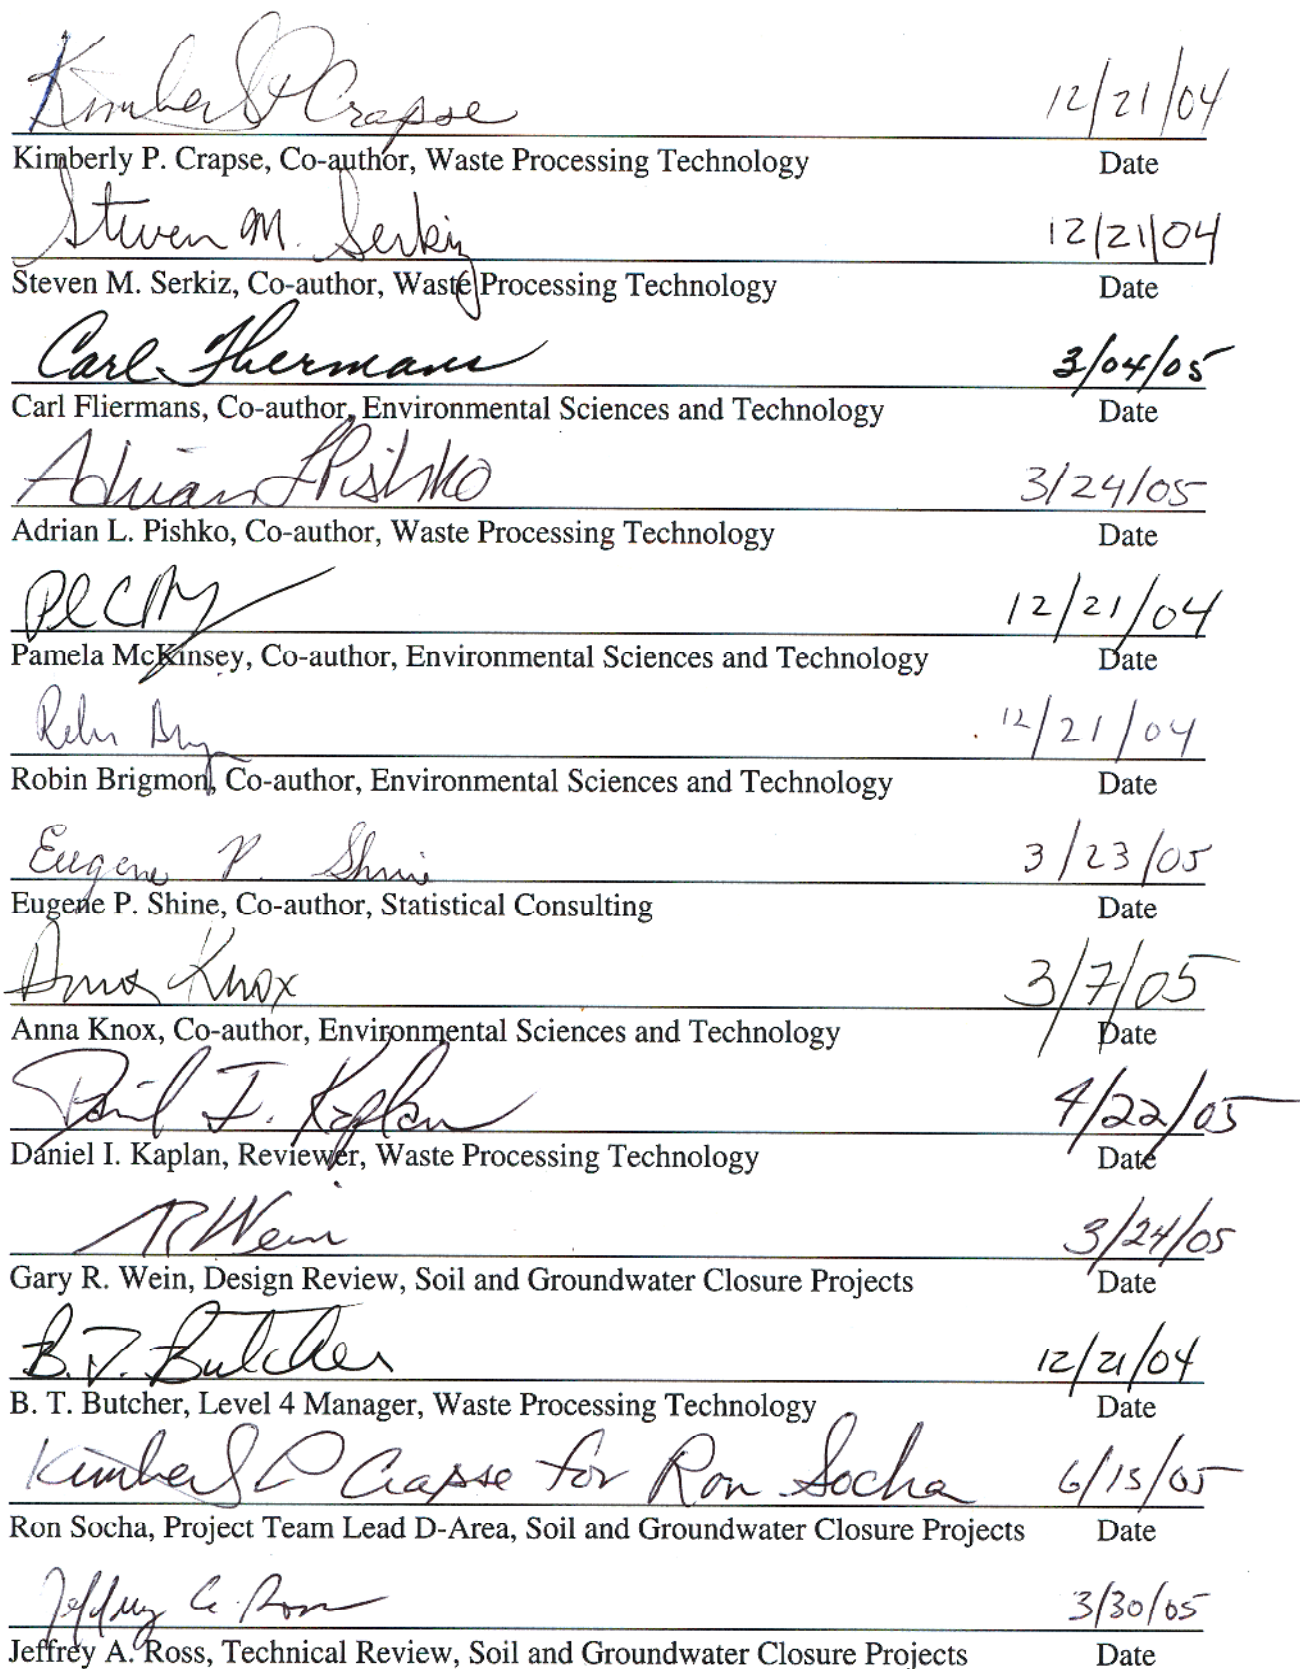 Kimberly P Crapse 12/21/04
Kimberly P. Crapse, Co-author, Waste Processing Technology Date
Steven M. Serkiz 12/21/04
Steven M. Serkiz, Co-author, Waste Processing Technology Date
Carl Fliermans 3/04/05
Carl Fliermans, Co-author, Environmental Sciences and Technology Date
Adrian L Pishko 3/24/05
Adrian L. Pishko, Co-author, Waste Processing Technology Date
12/21/04
Pamela McKinsey, Co-author, Environmental Sciences and Technology Date
Robin 12/21/04
Robin Brigmon, Co-author, Environmental Sciences and Technology Date
Eugene P. Shine 3/23/05
Eugene P. Shine, Co-author, Statistical Consulting Date
Anna Knox 3/7/05
Anna Knox, Co-author, Environmental Sciences and Technology Date
Daniel I. Kaplan 4/22/05
Daniel I. Kaplan, Reviewer, Waste Processing Technology Date
R Wein 3/24/05
Gary R. Wein, Design Review, Soil and Groundwater Closure Projects Date
B.T. Butcher 12/21/04
B. T. Butcher, Level 4 Manager, Waste Processing Technology Date
Kimberly P Crapse for Ron Socha 6/15/05
Ron Socha, Project Team Lead D-Area, Soil and Groundwater Closure Projects Date
Jeffrey A. Ross 3/30/05
Jeffrey A. Ross, Technical Review, Soil and Groundwater Closure Projects Date